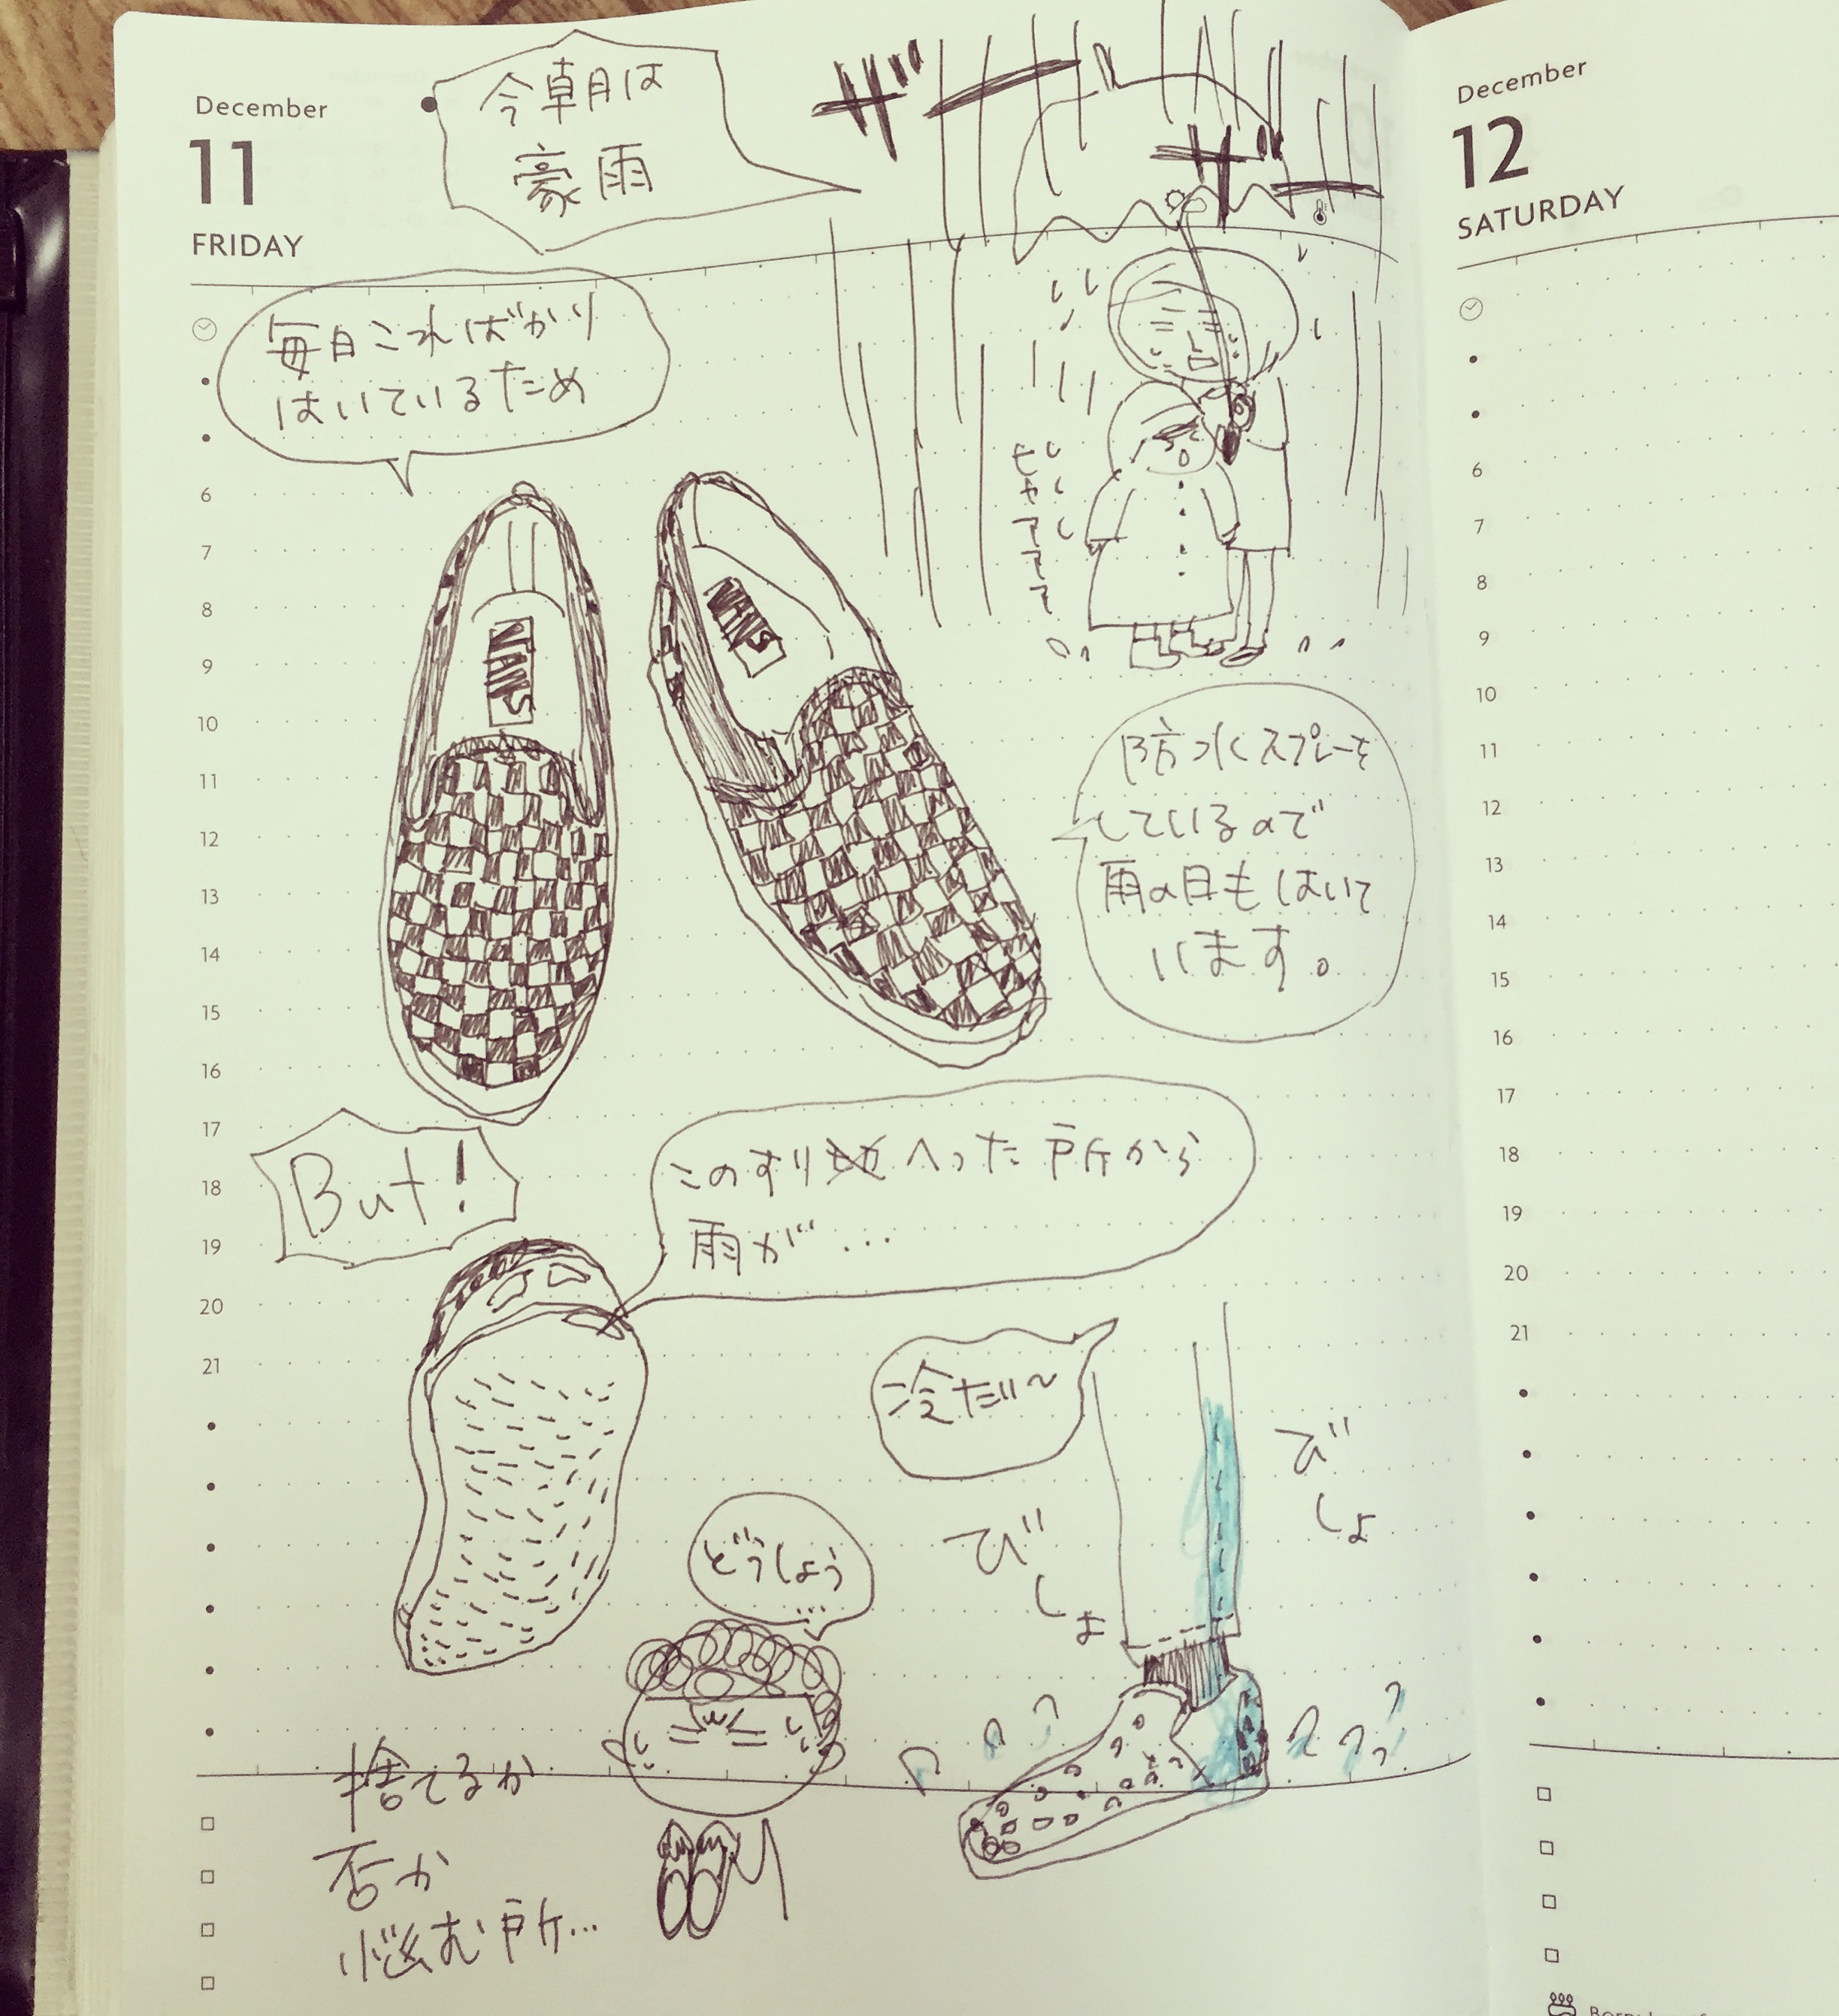 December
11
FRIDAY
今朝は
豪雨
ザー
ザー
毎日こればかり
はいているため
ヒャアアアア
VANS
VANS
防水スプレーを
しているので
雨の日もはいて
います。
But!
このすりへった所から
雨が…
冷だい〜
びしょ
びしょ
どうしよう
…
捨てるか
否か
悩む所…
6
7
8
9
10
11
12
13
14
15
16
17
18
19
20
21
December
12
SATURDAY
6
7
8
9
10
11
12
13
14
15
16
17
18
19
20
21